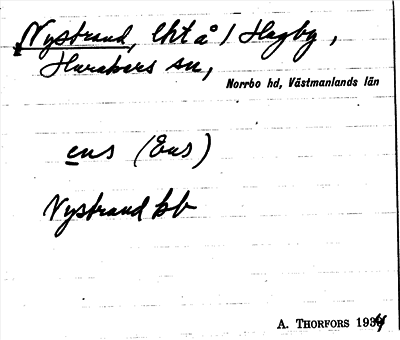 Nystrand, lht å 1 Hagby,
Harakers sn,
Norrbo hd, Västmanlands län
ens (Ens)
Nystrand bb
A. THORFORS 1934